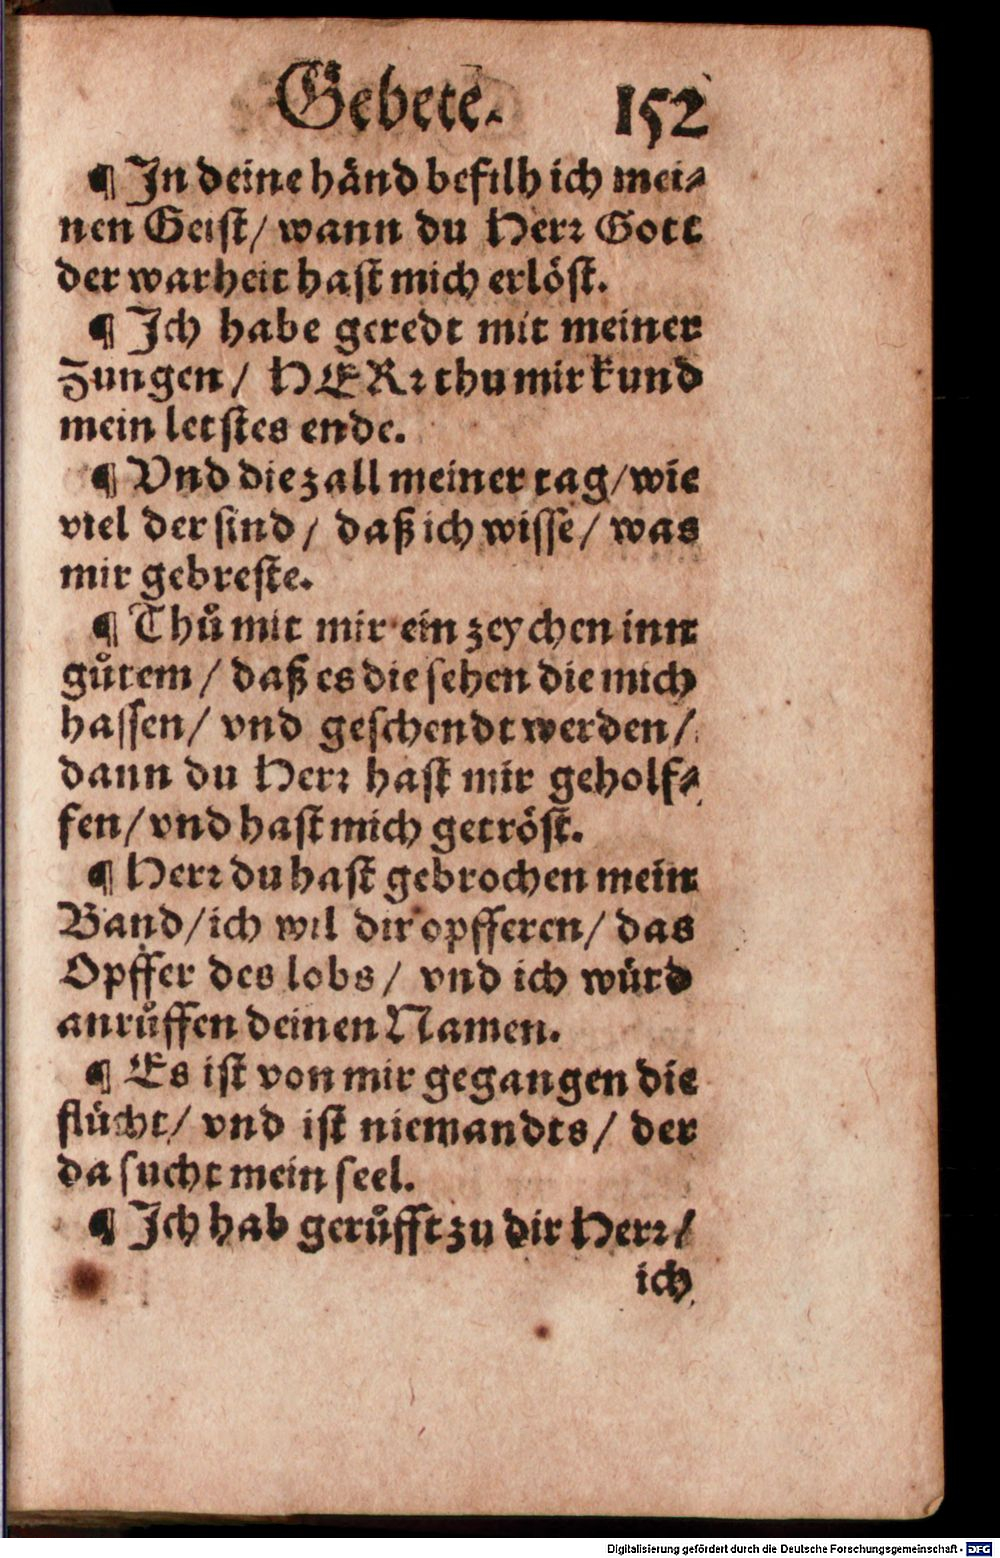 Gebete. 152
¶ In deine händ befilh ich mei⸗
nen Geist/ wann du Herꝛ Gott
der warheit hast mich erlöst.
¶ Ich habe geredt mit meiner
Zungen/ HERꝛ thu mir kund
mein letstes ende.
¶ Vnd die zall meiner tag/ wie
viel der sind/ daß ich wisse/ was
mir gebreste.
¶ Thů mit mir ein zeychen inn
gůtem/ daß es die sehen die mich
hassen/ vnd geschendt werden/
dann du Herꝛ hast mir geholf⸗
fen/ vnd hast mich getröst.
¶ Herꝛ du hast gebrochen mein
Band/ ich wil dir opfferen/ das
Opffer des lobs/ vnd ich würd
anrůffen deinen Namen.
¶ Es ist von mir gegangen die
flücht/ vnd ist niemandts/ der
da sucht mein seel.
¶ Ich hab gerůfft zu dir Herꝛ/
ich
Digitalisierung gefördert durch die Deutsche Forschungsgemeinschaft - DFG